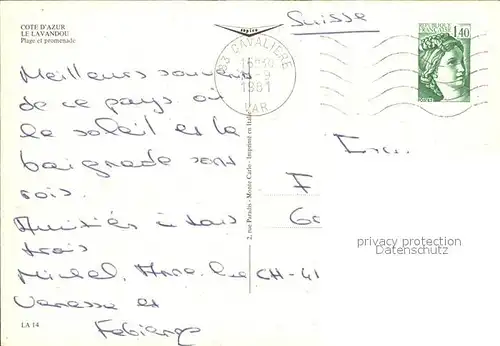 COTE D'AZUR
LE LAVANDOU
Plage et promenade
Suisse
83 CAVALIERE
1981
VAR
REPUBLIQUE FRANCAISE
1,40
POSTES
Meilleurs souvenirs
de ce pays où
le soleil et la
baignade sont
rois.
Amitiés à tous
trois
Michel, Anne
Vanessa et
2, rue Paradis - Monte Carlo - Imprimé en Italie
F
60
CH-41
privacy protection
Datenschutz
LA 14